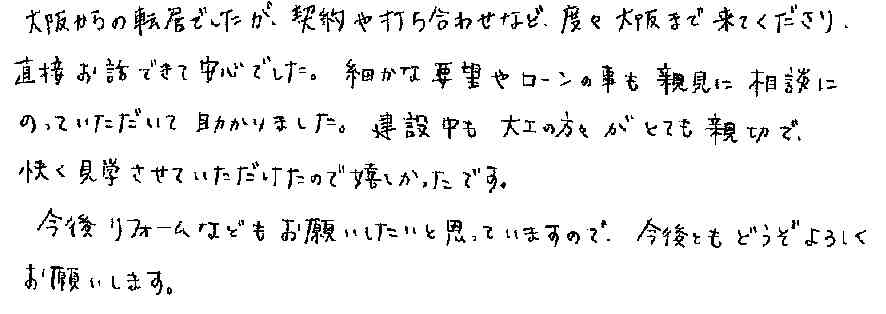 大阪からの転居でしたが、契約や打ち合わせなど、度々大阪まで来てくださり、
直接お話できて安心でした。細かな要望やローンの事も親見に相談に
のっていただいて助かりました。建設中も大工の方々がとても親切で、
快く見学させていただけたので嬉しかったです。
今後リフォームなどもお願いしたいと思っていますので、今後ともどうぞよろしく
お願いします。